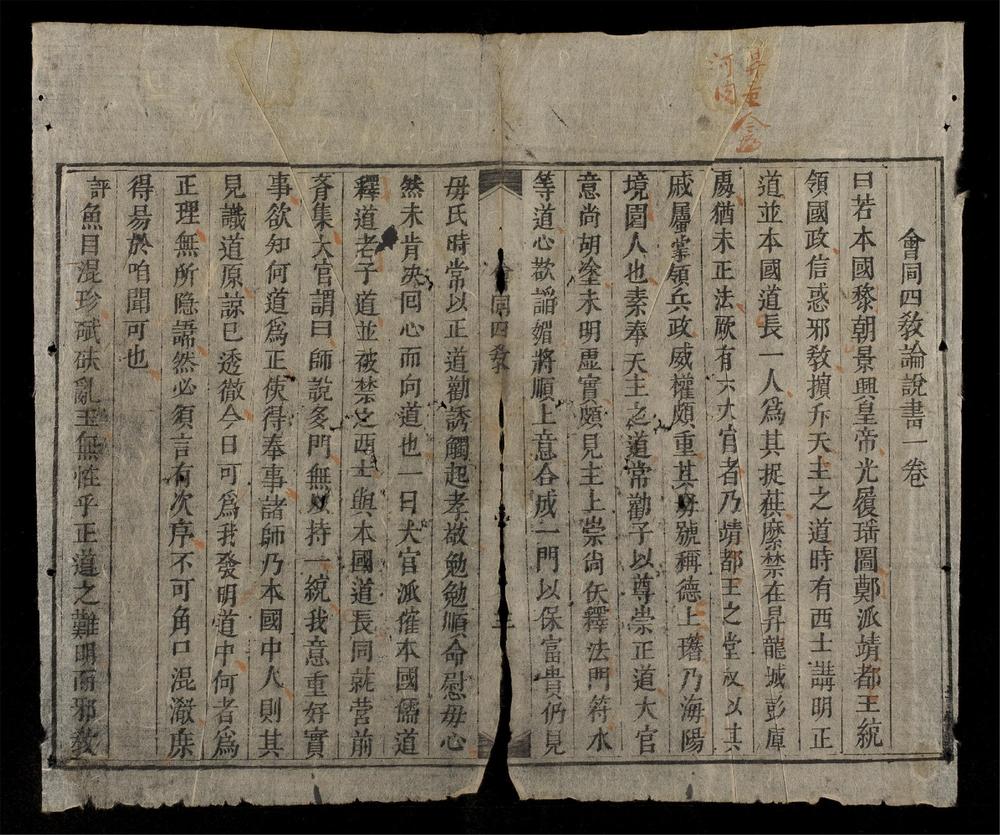 會同四教論說書一卷
曰若本國黎朝景興皇帝光履瑶圖鄭派靖都王統
領國政信惑邪教擯斥天主之道時有西士講明正
道並本國道長一人為其捉获縻禁在昇龍城彭庫
處猶未正法厥有六大官者乃靖都王之堂叔以其
戚屬掌領兵政威權頗重其母號稱德上瑨乃海陽
境圊人也素奉天主之道常勸子以尊崇正道大官
意尚胡塗未明虛實頗見主上崇尚佚釋法門符水
等道心欲謟媚將順上意合成一門以保富貴仍見
會同四教
毋氏時常以正道勸誘觸起孝敬勉勉順命慰毋心
然未肯决囘心而向道也一日大官派催本國儒道
釋道老子道並被禁之西士與本國道長同就營前
斉集大官謂曰師說多門無以持一統我意重好實
事欲知何道為正使得奉事諸師乃本國中人則其
見識道原諒已透徹今日可為我發明道中何者為
正理無所隐語然必須言有次序不可角口混澈庶
得易於咱聞可也
評魚目混珍碔砆亂玉無怪乎正道之難明而邪教
河內